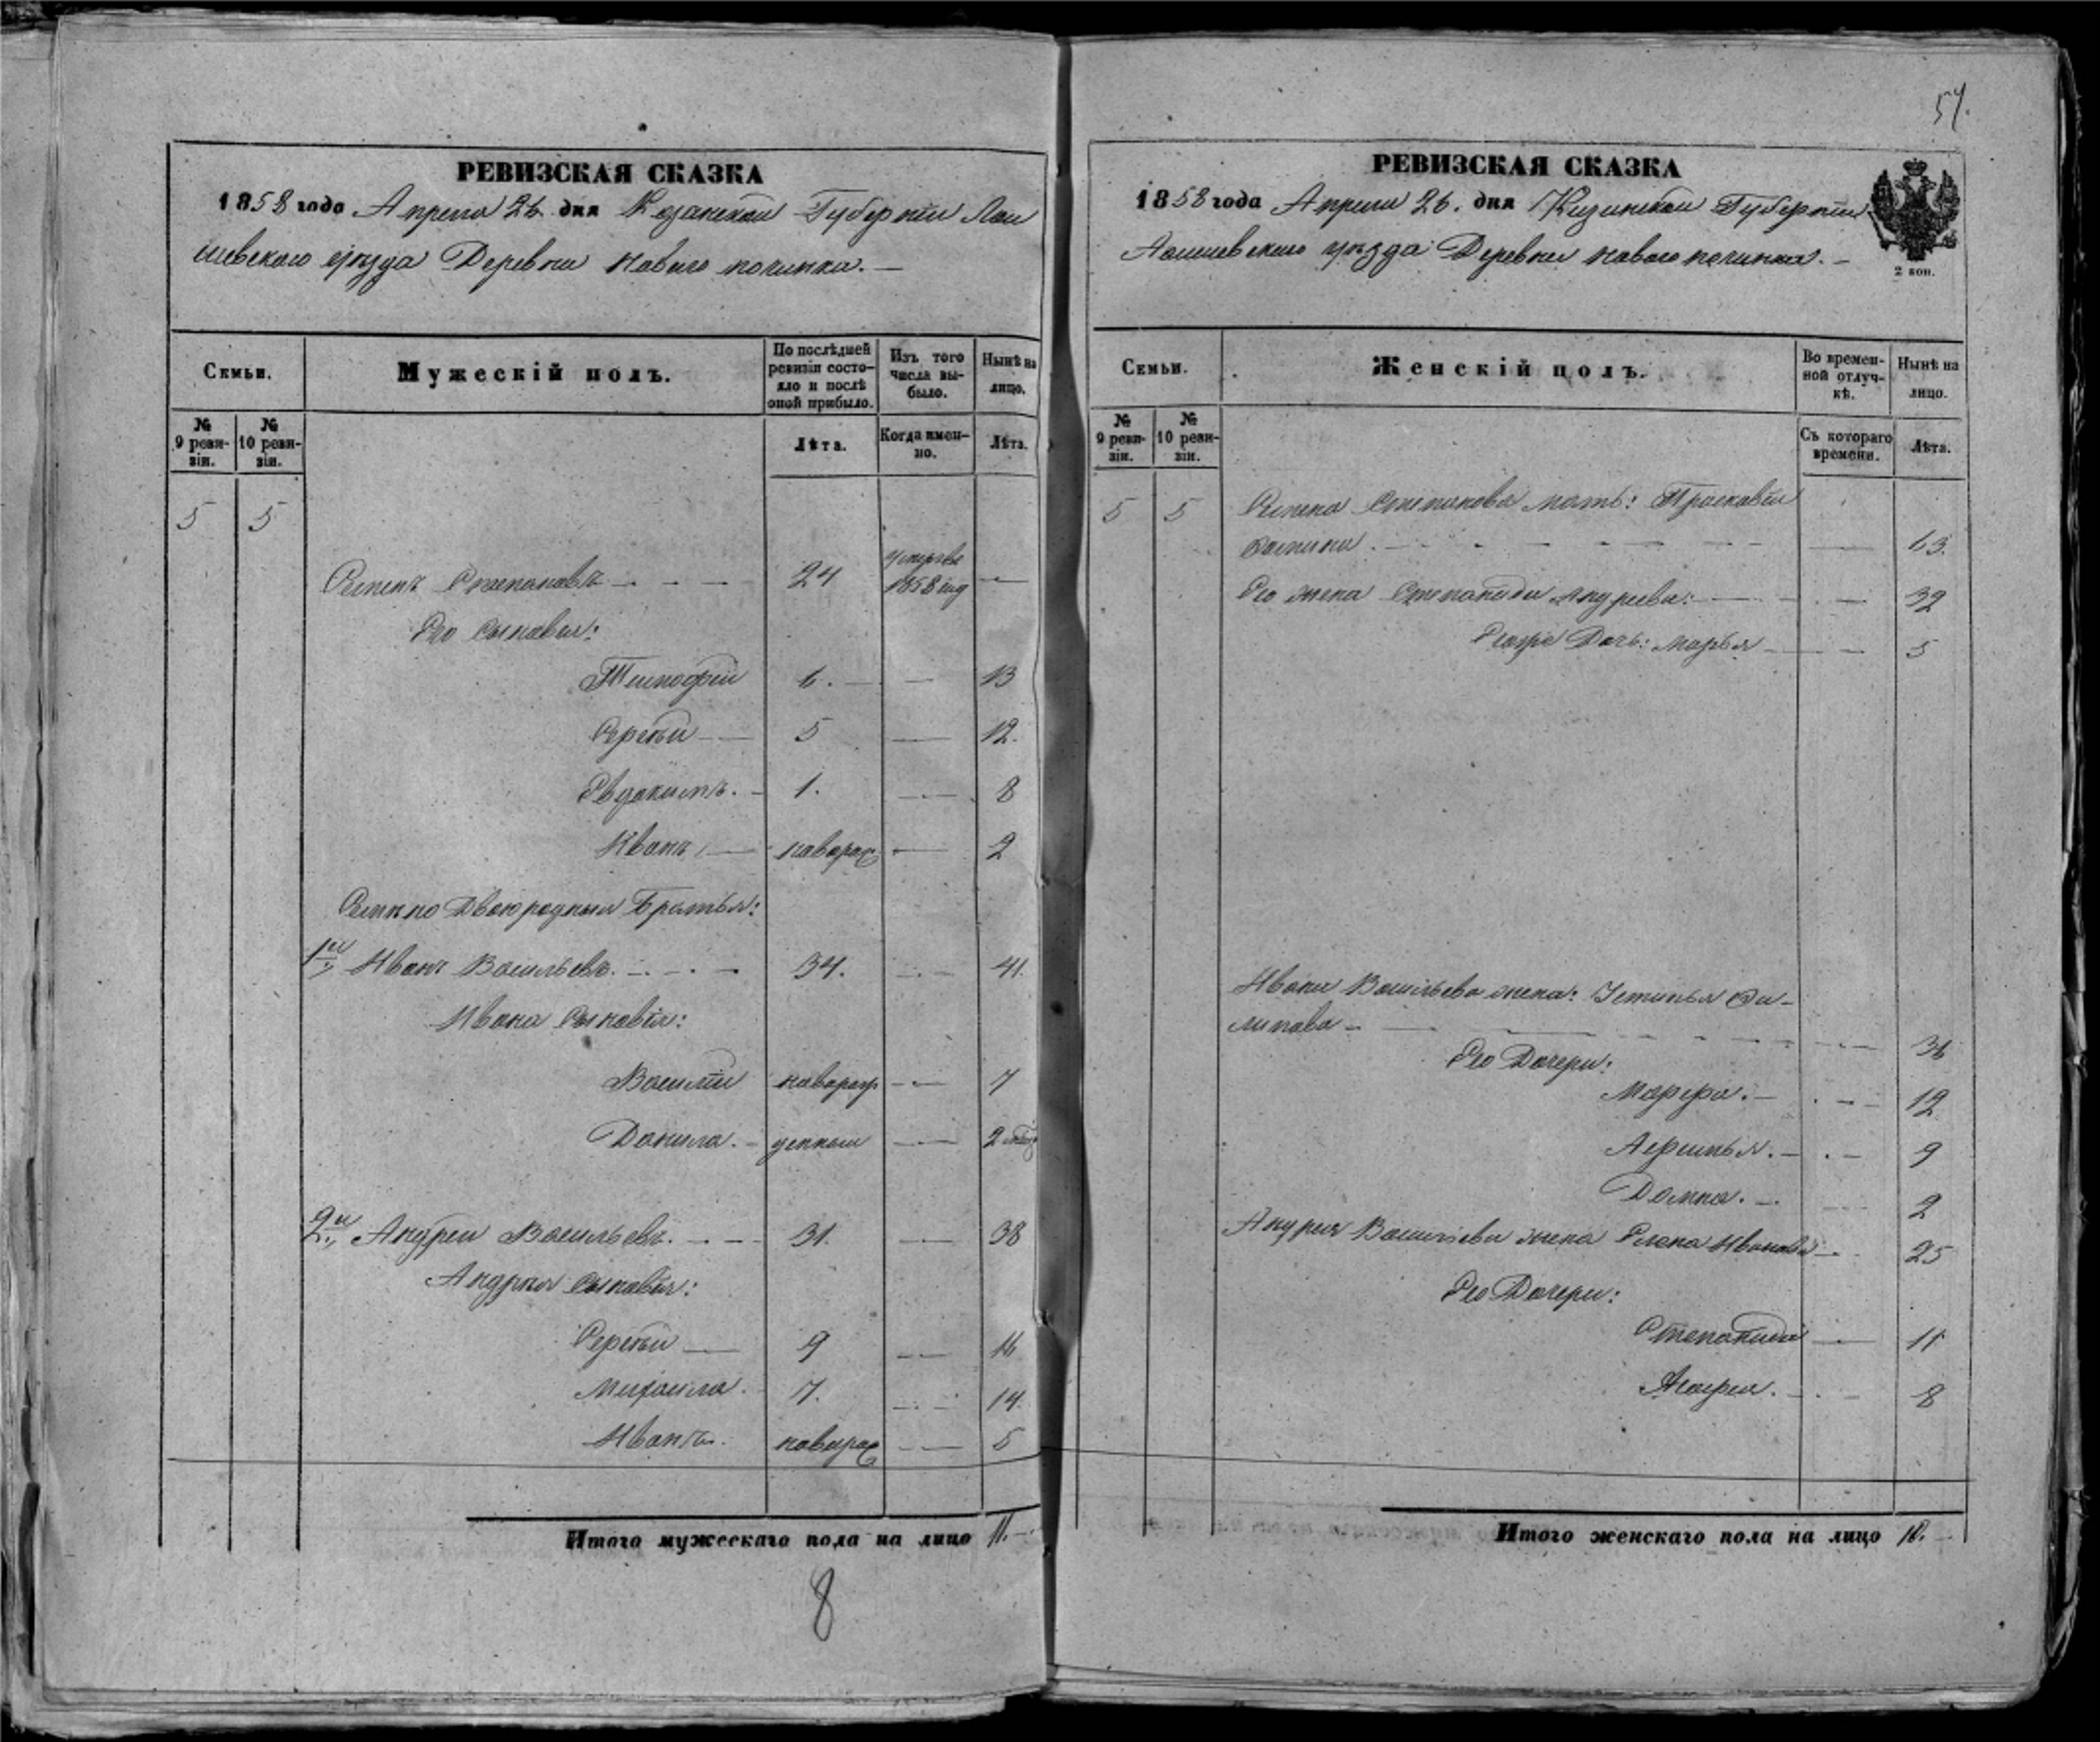 РЕВИЗСКАЯ СКАЗКА
1858 года Апреля 26 дня Казанской Губернiи Лаи
шевского уѣзда Деревни Новаго починка. —
Семьи.
Мужескiй полъ.
По послѣдней ревизiи состояло и послѣ оной прибыло.
Изъ того числа выбыло.
Нынѣ на лицо.
№ 9 ревизiи.
№ 10 ревизiи.
Лѣта.
Когда именно.
Лѣта.
5 5
Семенъ Степановъ 24 умеръ 1858 —
Его сыновья:
Тимофей 6. — 13
Сергѣй 5 — 12.
Евдокимъ. 1. — 8
Иванъ новорож — 2
Семена двоюродныя братья:
1й Иванъ Васильевъ. 34. — 41.
Ивана сыновья:
Василiй новорож — 7
Данила. — 2
2й Андрей Васильевъ. 31. — 38
Андрея сыновья:
Сергѣй 9 — 16
Михаила. 7. — 14.
Иванъ. новорож — 5
Итого мужескаго пола на лицо 11. —
8
54.
РЕВИЗСКАЯ СКАЗКА
1858 года Апреля 26. дня Казанской Губернiи
Лаишевского уѣзда Деревни Новаго починка. —
2 коп.
Семьи.
Женскiй полъ.
Во временной отлучкѣ.
Нынѣ на лицо.
№ 9 ревизiи.
№ 10 ревизiи.
Съ котораго времени.
Лѣта.
5 5 Семена Степанова мать: Прасковья
Фомина. — 63.
Его жена Степанида Андреева: — 32
Его дочь: Марья — 5
Ивана Васильева жена: Устинья Фи-
липова — 36
Его Дочери:
Марфа. — 12
Афимья. — 9
Домна. — 2
Андрея Васильева жена Елена Иванова — 25
Его Дочери:
Степанида — 11
Агафья. — 8
Итого женскаго пола на лицо 10. —